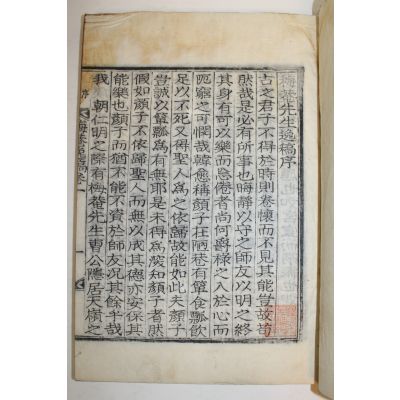 梅菴先生逸稿序
古之君子不得於時則卷懷而不見其能豈故苟
然哉是必有所事也晦靜以守之師友以明之終
其身有可以樂而忘倦者尚何爵祿之入於心而
阨窮之可憫哉韓愈稱顔子在陋巷有簞食瓢飮
足以不死又得聖人爲之依歸故能如此夫顔子
以簞瓢爲有無耶是未得爲深知顔子者然
假如顔子不依歸聖人成其德亦安保其
能樂也顔子而猶不能不資於師友况其餘乎哉
我 朝仁明之際有梅菴先生曺公隱居天嶺之
序 梅菴逸稿 一